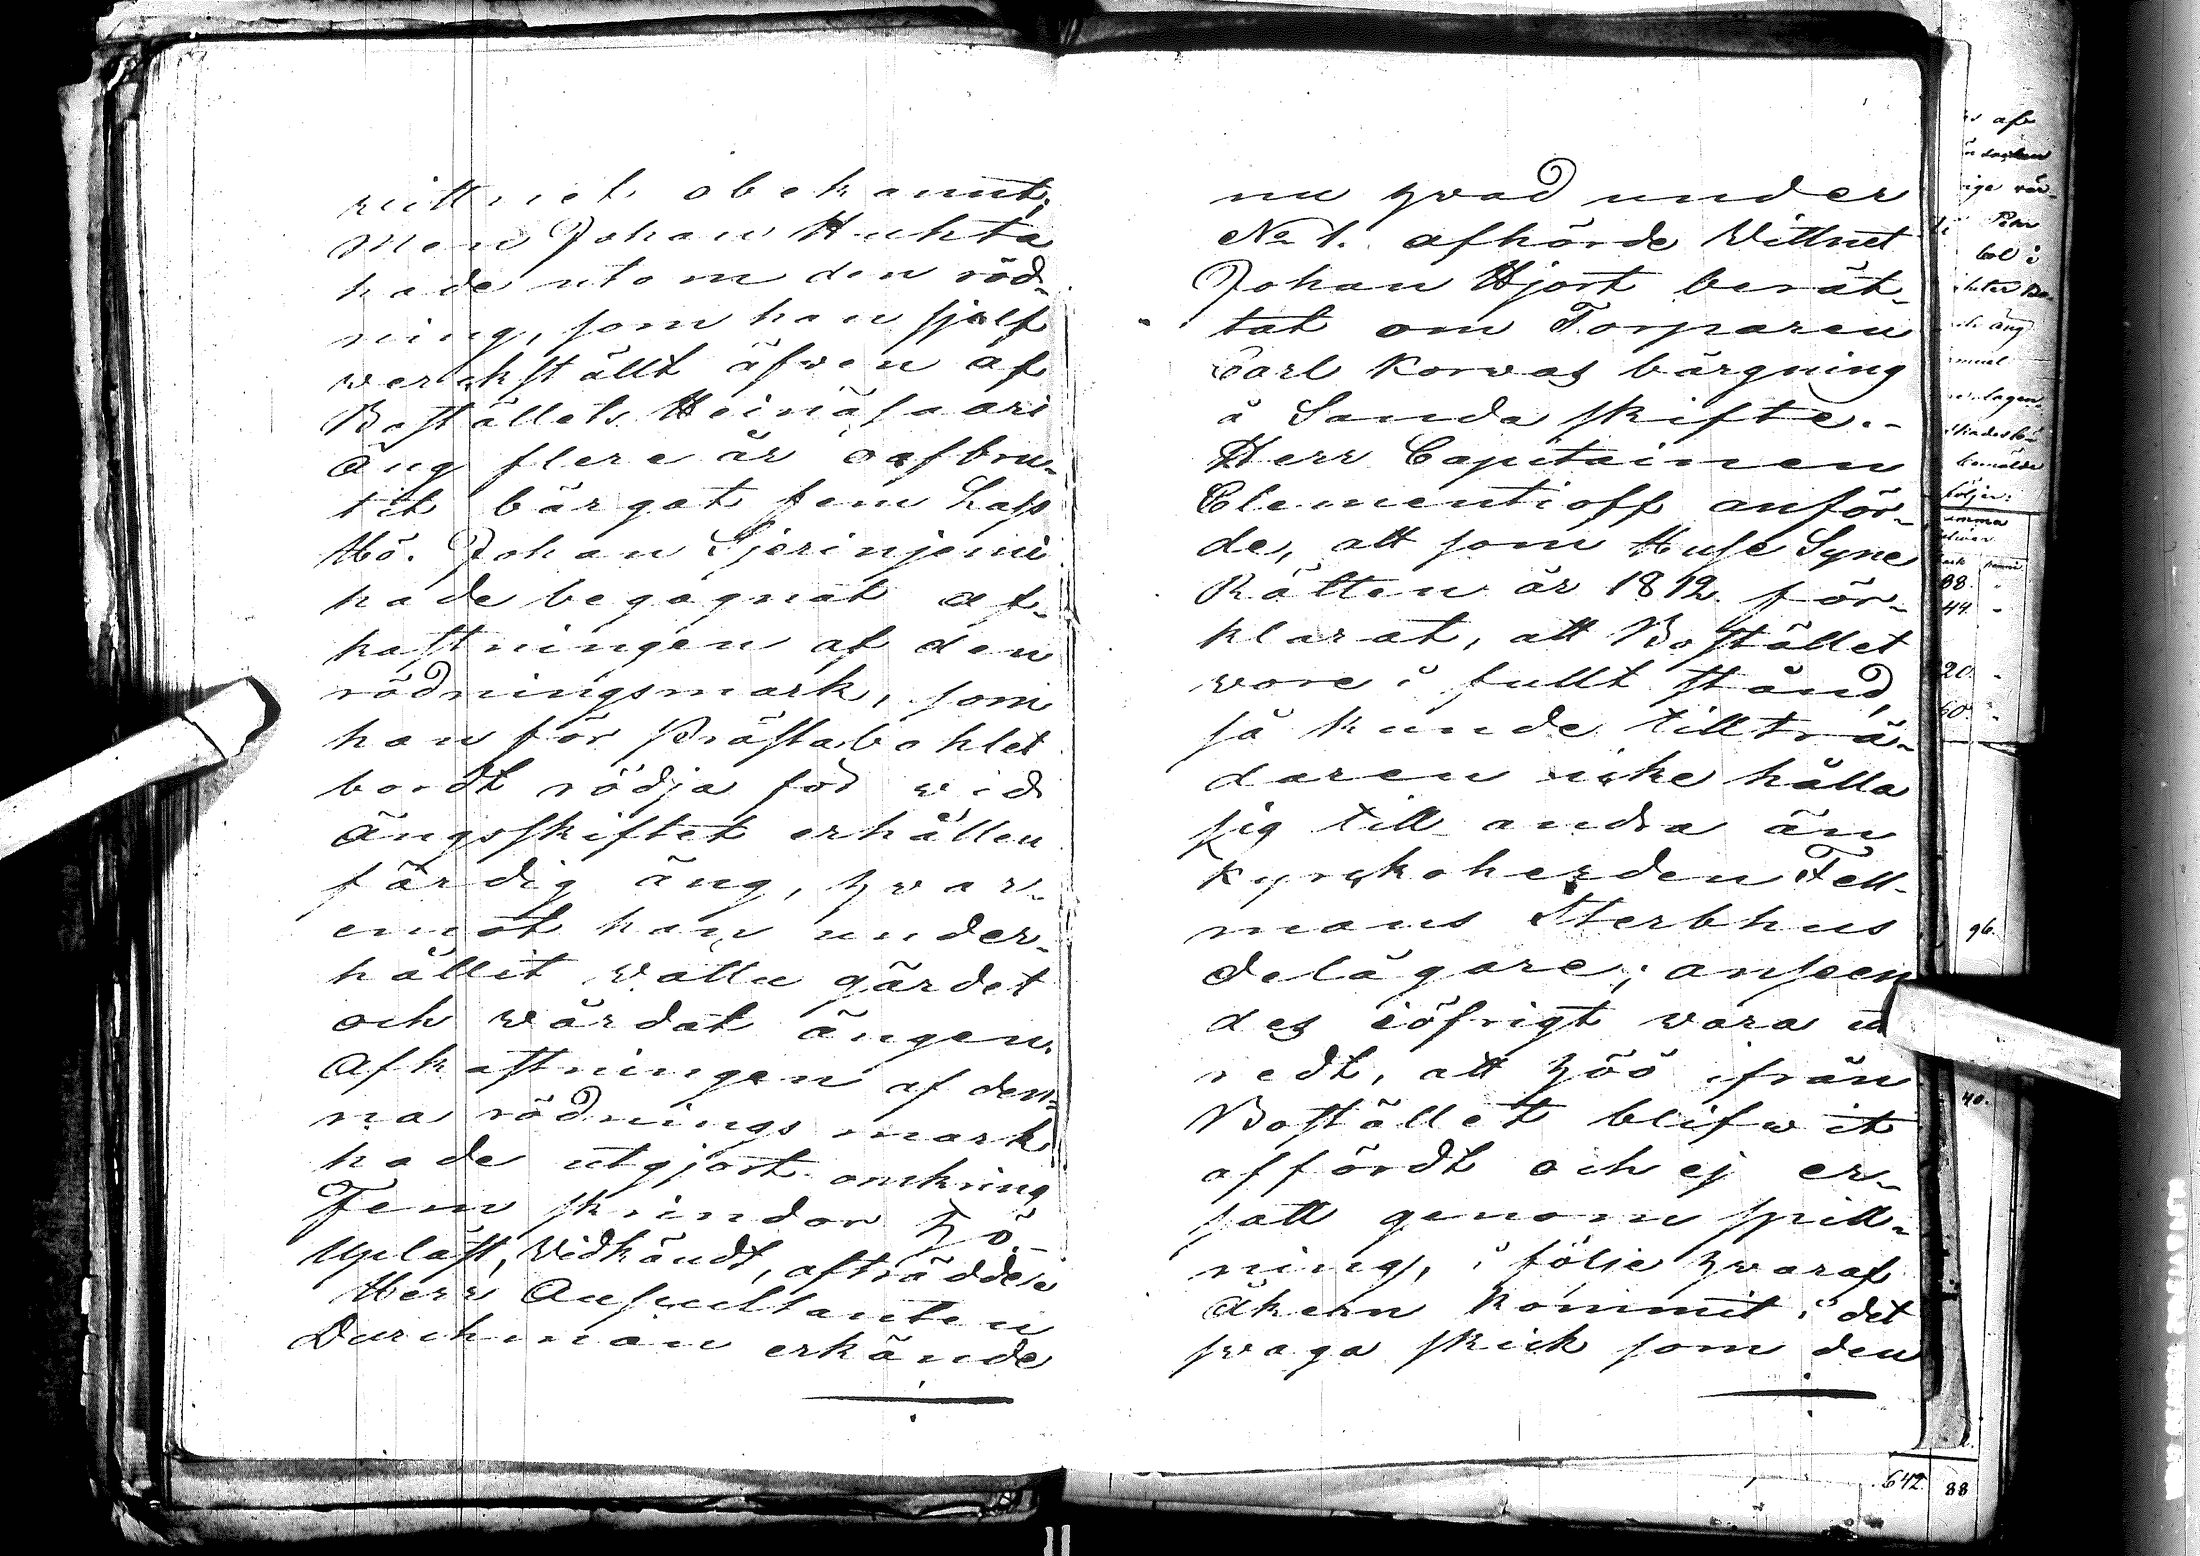 vittnet obekannt,
Men Johan Huhta
hade utom den röd-
ning, som han sjelf
werckställt äfwen af
Boställets Heinäsaari
äng flere år oafbru-
tit bärgat fem Lass
Hö. Johan Sjerinjemi
hade begagnat af-
kastningen af den
rödningsmark, som
han för Prästabohlet
bordt rödja för wid
Ängsskiftet erhållen
färdig äng, hwar-
emot han under-
hållit vattu gärdet
och wårdat ängen.
Afkastningen af den-
na rödnings mark
hade utgjort omkring
Fem skrindor hö.
Upläst, Vidkändt, afträdde.
Herr Auscultanten
Durchman erkände
nu hwad under
No 1. afhörde Vittnet
Johan Hjort berät-
tat om Torparen
Carl Korwas bärgning
å Sanda skifte.-
Herr Capitainen
Clementioff anför-
de, att som Huse Syne
Rätten år 1812 för-
klarat, att Bostället
wore i fullt stånd,
så kunde tillträ-
daren icke hålla
sig till andra än
Kyrckoherden Fell-
mans Sterbhus
delägare; anseen
des iöfrigt wara u
redt, att höö ifrån
Bostället blifwit
affördt och ej er-
satt genom spill-
ning, i följe hwaraf
Åkern kommit i det
swaga skick som den
af
Pehr
bol i
äng
lagen
följer:
summa
88
44
20
60.
96.
40.
642 88